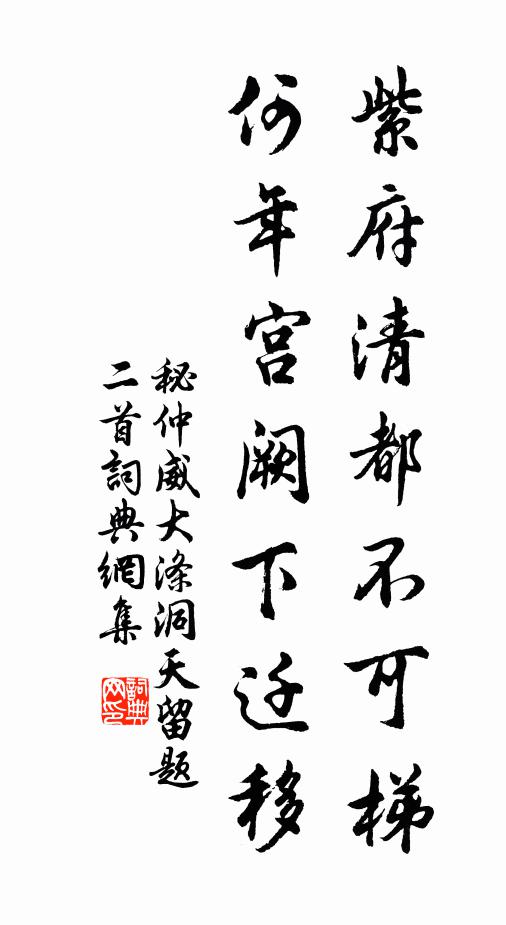 紫府清都不可梯
何年宫阙下迁移
秘仲威大涤洞天留题
二首詞典網集
詞典网印